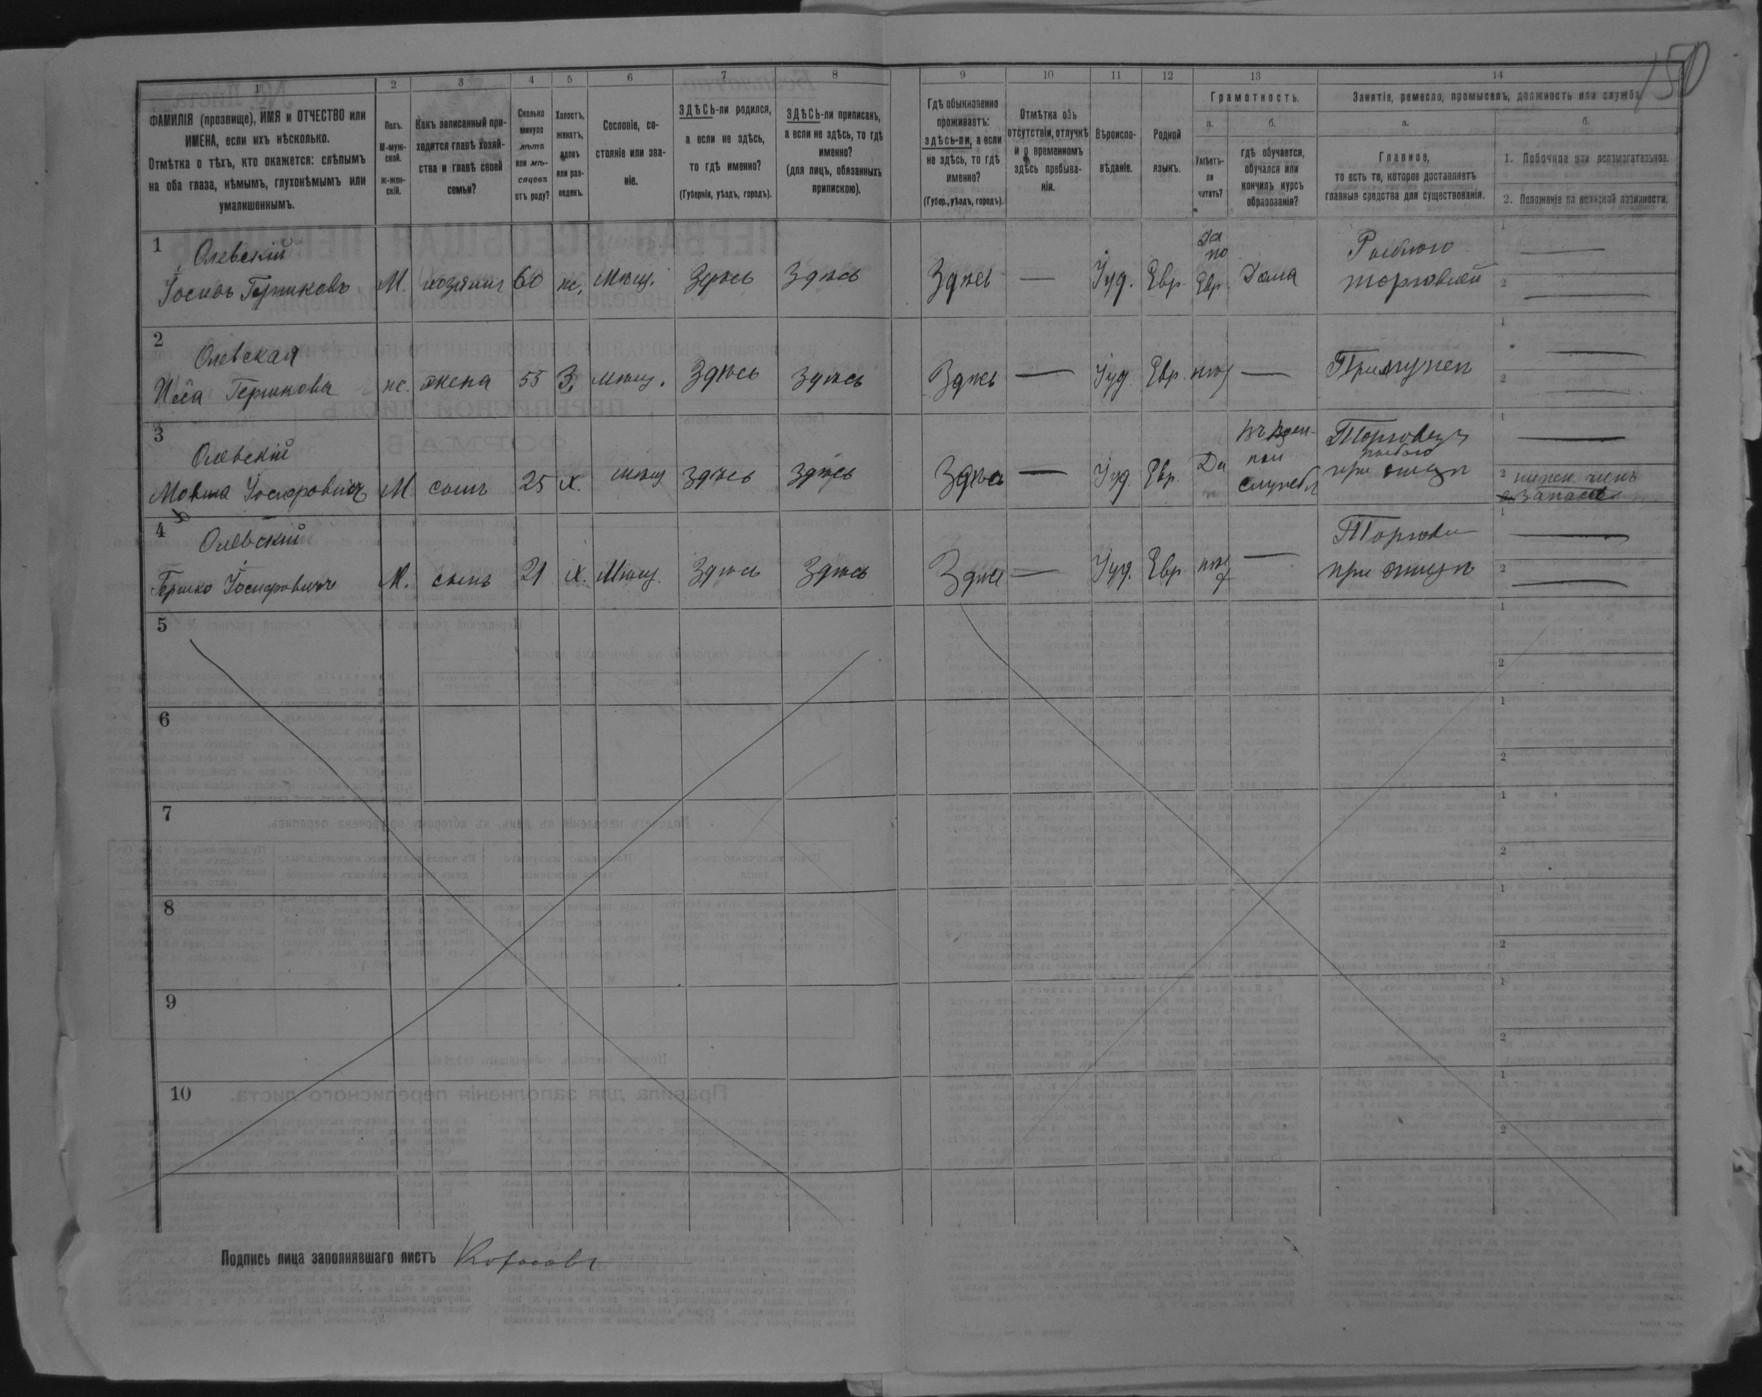 150
1 2 3 4 5 6 7 8 9 10 11 12 13 14
ФАМИЛІЯ (прозвище), ИМЯ и ОТЧЕСТВО или
ИМЕНА, если ихъ нѣсколько.
Отмѣтка о тѣхъ, кто окажется: слѣпымъ
на оба глаза, нѣмымъ, глухонѣмымъ или
умалишеннымъ.
Полъ.
М-муж-
ской.
ж-жен-
скій.
Какъ записанный при-
ходится главѣ хозяй-
ства и главѣ своей
семьи?
Сколько
минуло
лѣтъ
или мѣ-
сяцевъ
отъ роду?
Холостъ,
женатъ,
вдовъ
или раз-
веденъ.
Сословіе, со-
стояніе или зва-
ніе.
ЗДѢСЬ-ли родился,
а если не здѣсь,
то гдѣ именно?
(Губернія, уѣздъ, городъ).
ЗДѢСЬ-ли приписанъ,
а если не здѣсь, то гдѣ
именно?
(для лицъ, обязанныхъ
припискою).
Гдѣ обыкновенно
проживаетъ:
здѣсь-ли, а если
не здѣсь, то гдѣ
именно?
(Губер., уѣздъ, городъ).
Отмѣтка объ
отсутствіи, отлучкѣ
и о временномъ
здѣсь пребыва-
ніи.
Вѣроиспо-
вѣданіе.
Родной
языкъ.
Грамотность.
а.
Умѣетъ-
ли
читать?
б.
гдѣ обучается,
обучался или
кончилъ курсъ
образованія?
Занятіе, ремесло, промыселъ, должность или служба.
а.
Главное,
то есть то, которое доставляетъ
главныя средства для существованія.
б.
1. Побочное или вспомогательное.
2. Положеніе по воинской повинности.
1
Олевскій
Іосифъ Гершковъ М. хозяинъ 60 ж. Мѣщ. Здѣсь Здѣсь Здѣсь — Іуд. Евр. Да по Евр. Дома
торговлей
1 —
2 —
2
Олевская
Гершкова ж. жена 55 З. Мѣщ. Здѣсь Здѣсь Здѣсь — Іуд. Евр. нѣтъ —
При мужѣ
1 —
2 —
3
Олевскій
Мовша Іосифовичъ М сынъ 25 х. мѣщ Здѣсь Здѣсь Здѣсь — Іуд. Евр. Да
службѣ
Торговецъ
рыбою
при отцѣ
1 —
2 нижн. чинъ
запаса
4
Олевскій
Гершко Іосифовичъ М. сынъ 21 х. Мѣщ. Здѣсь Здѣсь Здѣсь — Іуд. Евр нѣтъ —
при отцѣ
1 —
2 —
5
1
2
6
1
2
7
1
2
8
1
2
9
1
2
10
1
2
Подпись лица заполнявшаго листъ